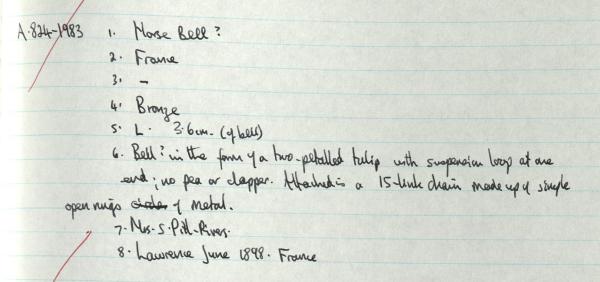 A.824-1983 1. Horse Bell?
2. France
3. -
4. Bronze
5. L. 3.6cm. (of bell)
6. Bell? in the form of a two-petalled tulip with suspension loop at one
end; no pea or clapper. Attached is a 15-link chain made up of single
open rings of metal.
7. Mrs. S. Pitt-Rivers.
8. Lawrence June 1898. France